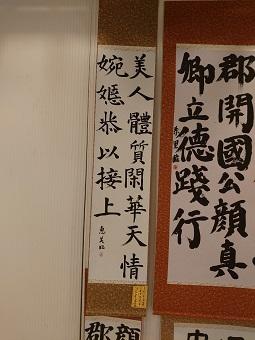 郡開國公顔真
卿立德踐行
美人體質閑華天情
婉嫕恭以接上
惠美臨
顔
郡